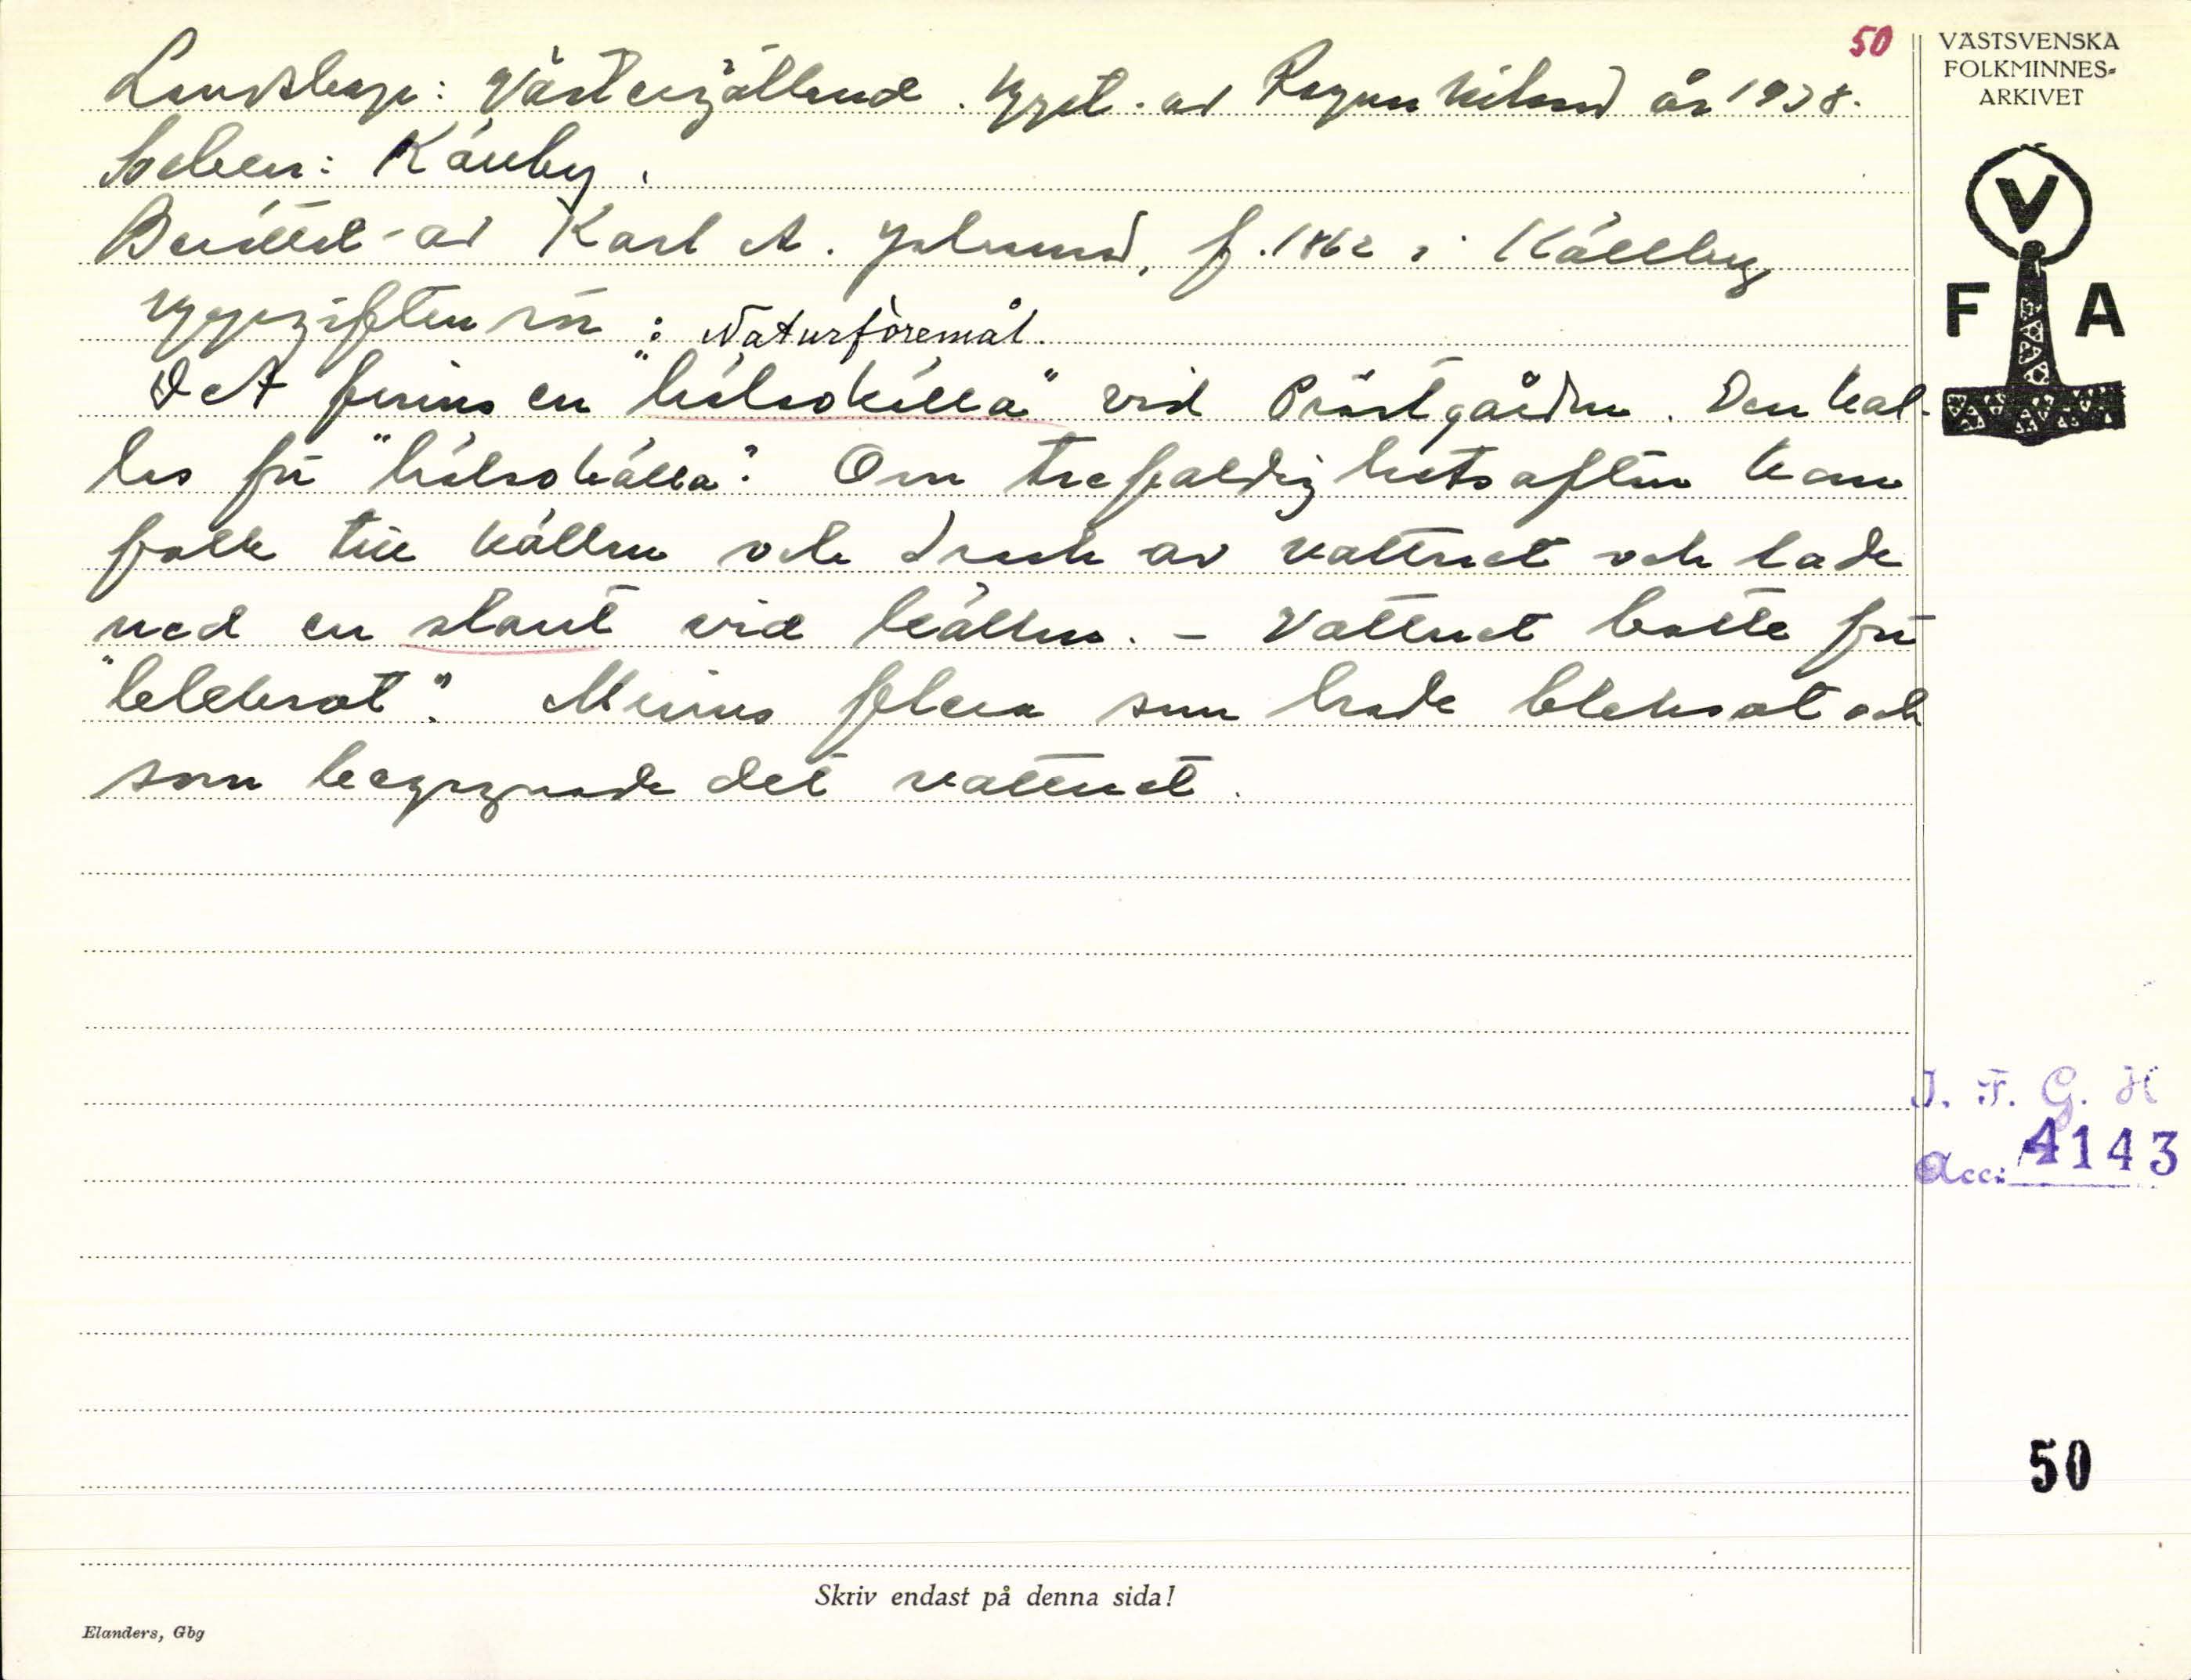 50
Landskap: Västergötland. Uppt. av Ragnar Nilsson år 1938.
Socken: Källby.
Berättat av Karl A. f. 1862 i Källby
Uppgiften rör: Naturföremål.
Det finns en "hälsokälla" vid Prästgården. Den kal-
las för "hälsokälla". Om trefaldighetsafton kom
folk till källan och drack av vattnet och lade
ned en slant vid källan. - Vattnet botte för
"bleksot". Minns flera som hade bleksot och
som begagnade det vattnet.
VÄSTSVENSKA
FOLKMINNES-
ARKIVET
V
F A
I. F. G. H
Acc: 4143
50
Skriv endast på denna sida!
Elanders, Gbg